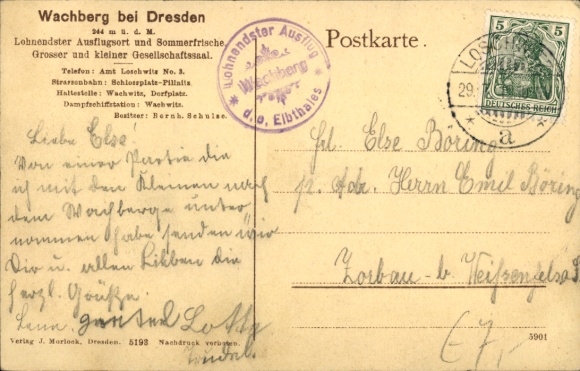 Wachberg bei Dresden
244 m ü. d. M.
Lohnendster Ausflugsort und Sommerfrische
Grosser und kleiner Gesellschaftssaal.
Telefon: Amt Loschwitz No. 3.
Strassenbahn: Schlossplatz-Pillnitz.
Haltestelle: Wachwitz, Dorfplatz.
Dampfschiffstation: Wachwitz.
Besitzer: Bernh. Schulze.
Lohnendster Ausflug
Wachberg
d. o. Elbthales
Postkarte.
5 5
DEUTSCHES REICH
29.
a
Liebe Else!
Von einer Partie die
ich mit den Kleinen nach
dem Wachberge unter
nommen habe senden wir
Dir u. allen Lieben die
herzl. Grüße
Lena. Lotte
Frl. Else Böring
p. Adr. Herrn Emil Böring
Zorbau b. Weißenfels a. S.
7,-
Verlag J. Murlock, Dresden. 5193 Nachdruck verboten.
5901